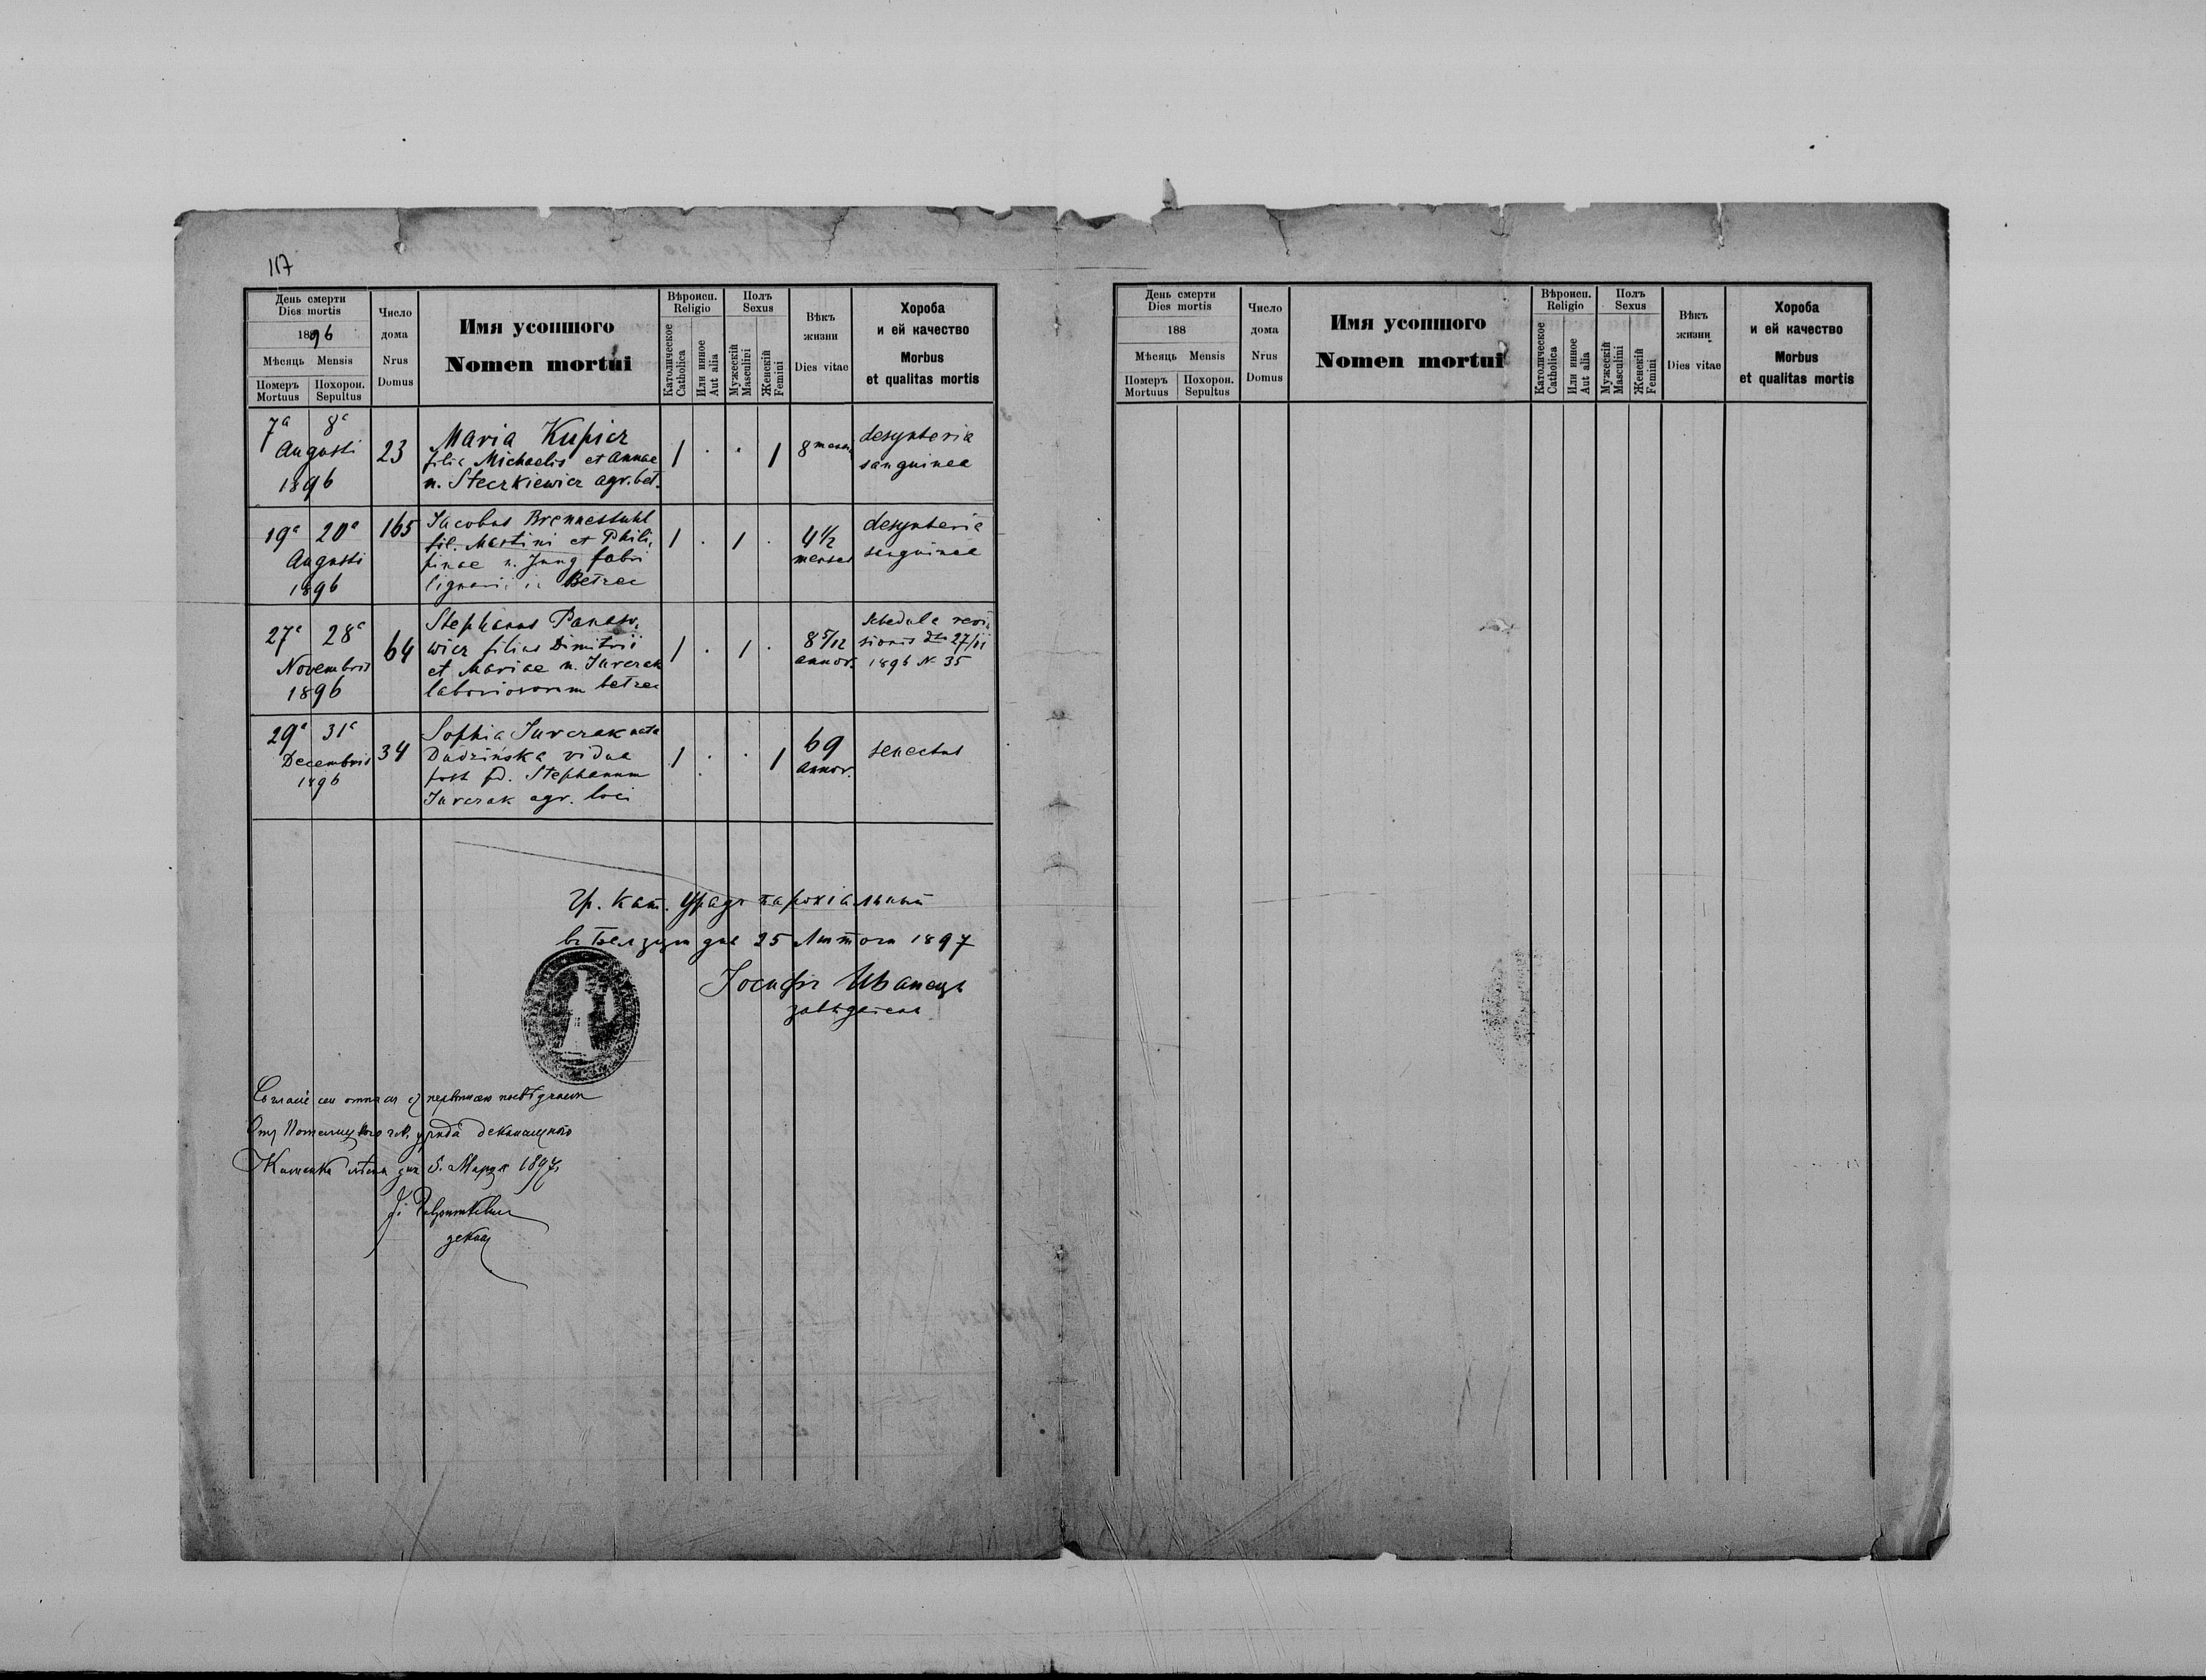 117
День смерти
Dies mortis
1896
Мѣсяць Mensis
Померъ Mortuus
Похорон. Sepultus
Число дома
Nrus Domus
Имя усопшого
Nomen mortui
Вѣроисп.
Religio
Католическое Catholica
Или инное Aut alia
Полъ
Sexus
Мужескій Masculini
Женскій Femini
Вѣкъ жизни
Dies vitae
Хороба
и ей качество
Morbus
et qualitas mortis
7ª 8ª
Augusti
1896
23
Maria Kupicz
filia Michaelis et Annae
n. Steczkiewicz agr. bet.
1 . . 1
8 mens.
desynteria
sanguinea
19ª 20ª
Augusti
1896
165
Jacobus Brennestuhl
fil. Martini et Phili,
pinae n. Jung fabri
lignarii in Betzec
1 . 1 .
4 1/2
menses
desynteria
sanguinea
27ª 28ª
Novembris
1896
64
Stephanus Panaso,
wicz filius Dimitrii
et Mariae n. Jurczak
laboriosorum betzec
1 . 1 .
8 5/12
annor.
Schedula revi,
sionis dto 27/11
1896 N. 35
29ª 31ª
Decembris
1896
34
Sophia Jurczak nata
Dudzińska vidua
post fd. Stephanum
Jurczak agr. loci
1 . . 1
69
annor.
senectus
Гр. кат. Урядъ парохіальный
въ Белзци дня 25 Лютого 1897
Іосифъ Иванецъ
завѣдатель
5. Марта 1897
декан
День смерти
Dies mortis
188
Мѣсяць Mensis
Померъ Mortuus
Похорон. Sepultus
Число дома
Nrus Domus
Имя усопшого
Nomen mortui
Вѣроисп.
Religio
Католическое Catholica
Или инное Aut alia
Полъ
Sexus
Мужескій Masculini
Женскій Femini
Вѣкъ жизни
Dies vitae
Хороба
и ей качество
Morbus
et qualitas mortis